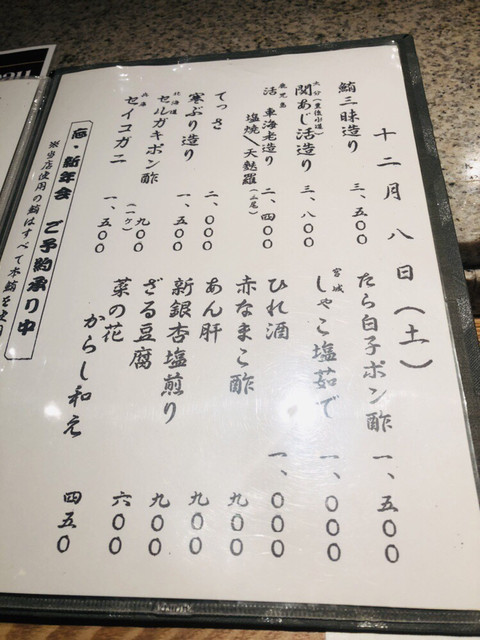 十二月八日(土)
鮪三昧造り 三、五〇〇
大分(豊後水道)
関あじ活造り 三、八〇〇
鹿児島
活 車海老造り 二、四〇〇
塩焼へ天麩羅(二尾)
てっさ 二、〇〇〇
寒ぶり造り 一、五〇〇
北海道
セルガキポン酢 九〇〇
(一ケ)
兵庫
セイコガニ 一、五〇〇
たら白子ポン酢 一、五〇〇
宮城
しゃこ塩茹で 一、〇〇〇
ひれ酒 一、〇〇〇
赤なまこ酢 九〇〇
あん肝 九〇〇
新銀杏塩煎り 九〇〇
ざる豆腐 六〇〇
菜の花
からし和え 四五〇
忘・新年会 ご予約承り中
※当店使用の鮪はすべて本鮪を使